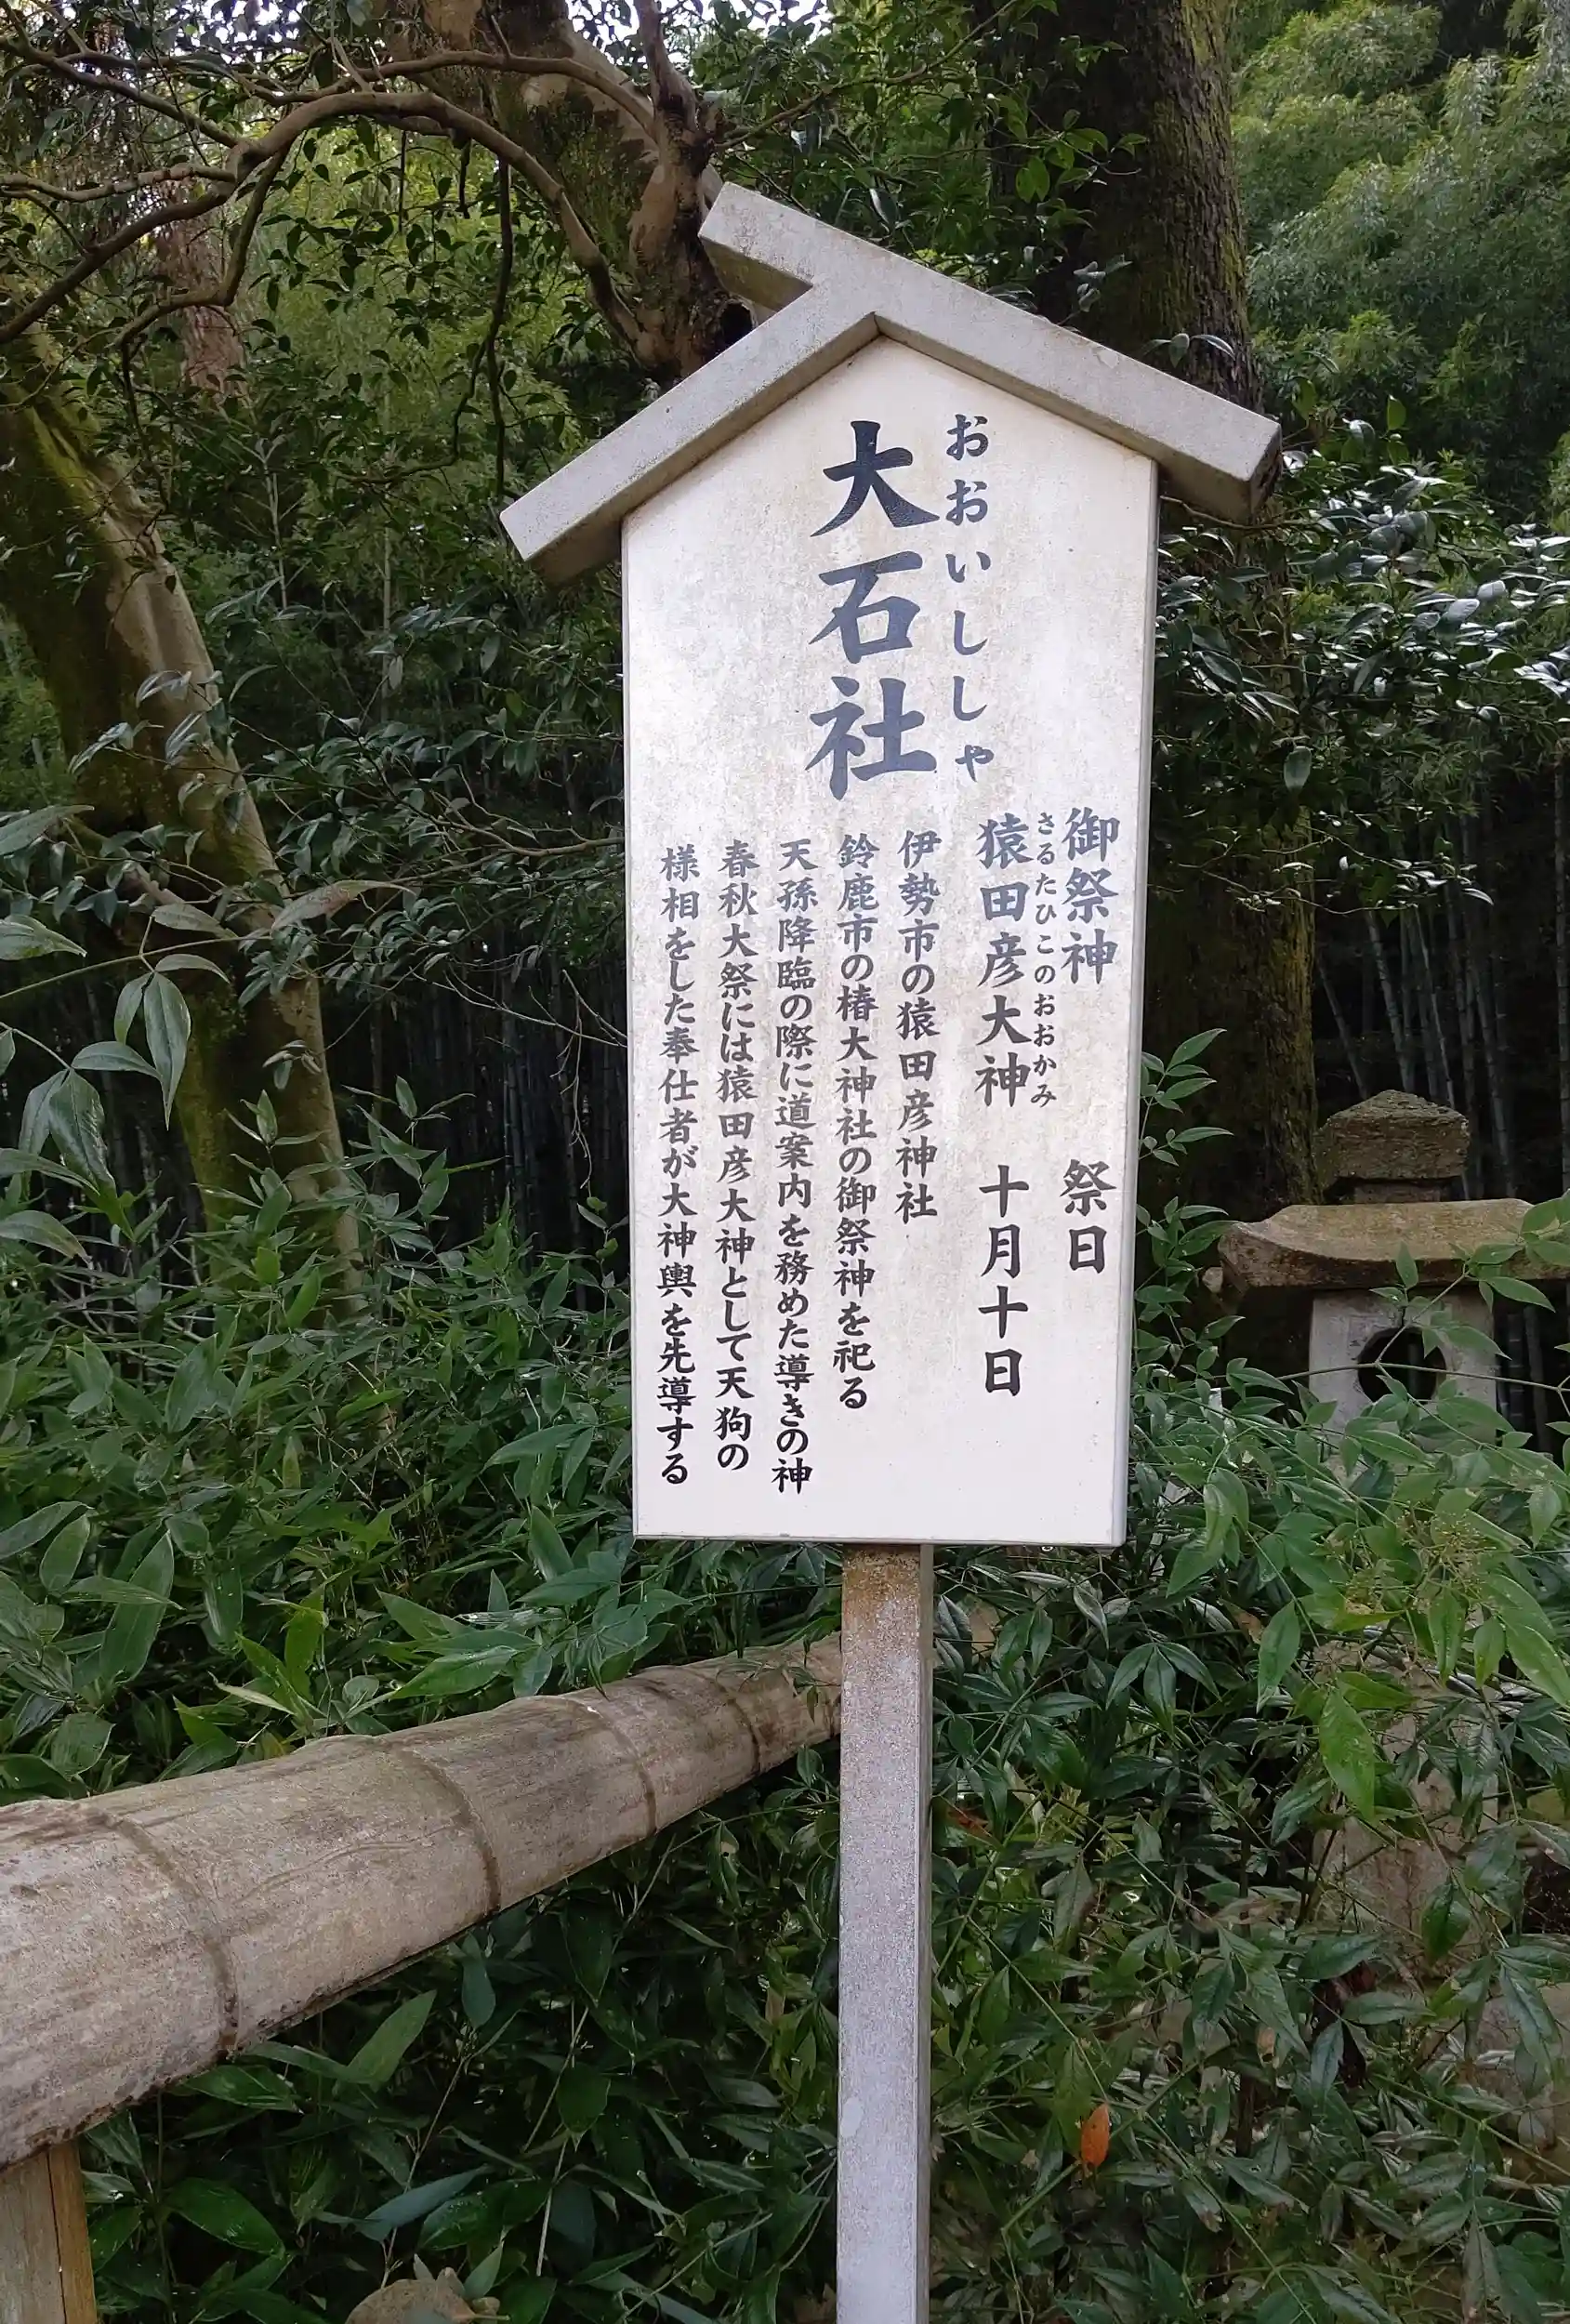 大石社
おおいししゃ
御祭神　祭日
さるたひこのおおかみ
猿田彦大神　十月十日
伊勢市の猿田彦神社
鈴鹿市の椿大神社の御祭神を祀る
天孫降臨の際に道案内を務めた導きの神
春秋大祭には猿田彦大神として天狗の
様相をした奉仕者が大神輿を先導する